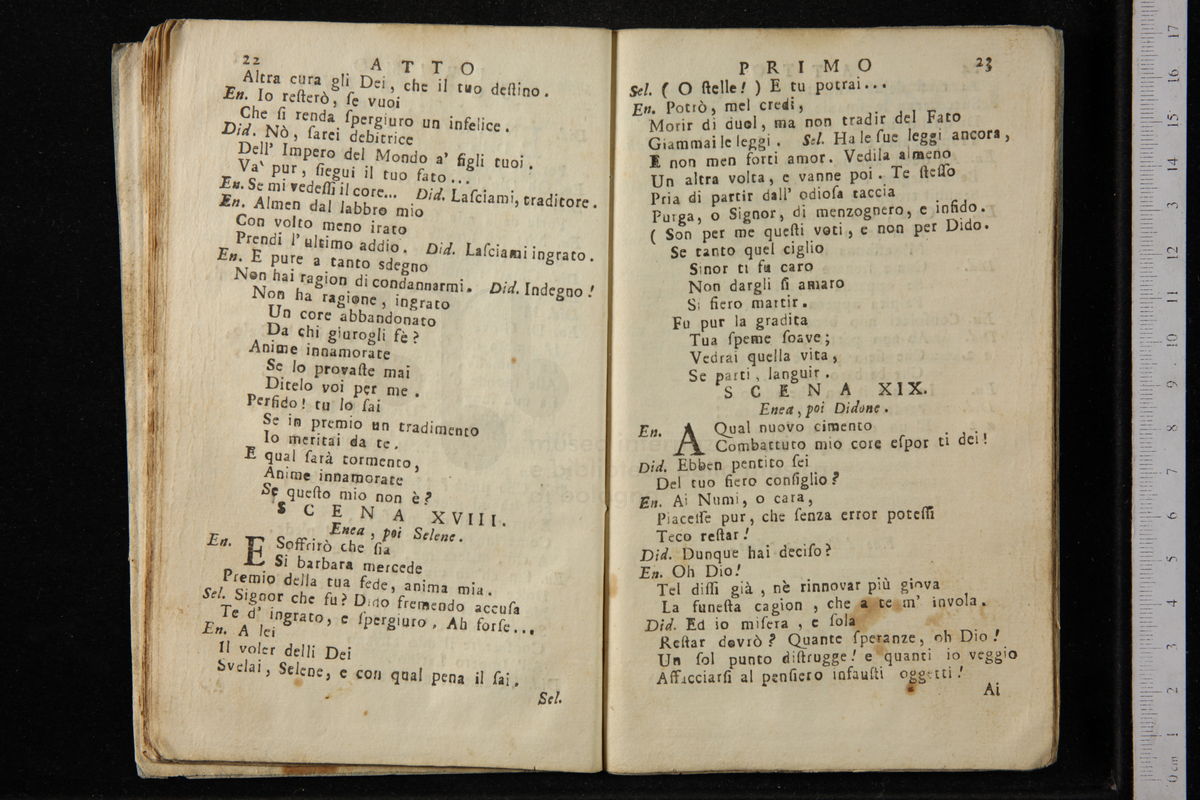 22
A T T O
Altra cura gli Dei, che il tuo deſtino.
En. Io reſterò, ſe vuoi
Che ſi renda ſpergiuro un infelice.
Did. Nò, ſarei debitrice
Dell' Impero del Mondo a' figli tuoi.
Va' pur, ſiegui il tuo fato...
En. Se mi vedeſſi il core... Did. Laſciami, traditore.
En. Almen dal labbro mio
Con volto meno irato
Prendi l'ultimo addio. Did. Laſciami ingrato.
En. E pure a tanto sdegno
Non hai ragion di condannarmi. Did. Indegno!
Non ha ragione, ingrato
Un core abbandonato
Da chi giurogli fè?
Anime innamorate
Se lo provaſte mai
Ditelo voi per me.
Perfido! tu lo ſai
Se in premio un tradimento
Io meritai da te.
E qual ſarà tormento,
Anime innamorate
Se queſto mio non è?
S C E N A XVIII.
Enea, poi Selene.
En. E Soffrirò che ſia
Sì barbara mercede
Premio della tua fede, anima mia.
Sel. Signor che fu? Dido fremendo accuſa
Te d' ingrato, e ſpergiuro. Ah forſe...
En. A lei
Il voler delli Dei
Svelai, Selene, e con qual pena il ſai.
Sel.
P R I M O
23
Sel. ( O ſtelle! ) E tu potrai...
En. Potrò, mel credi,
Morir di duol, ma non tradir del Fato
Giammai le leggi. Sel. Ha le ſue leggi ancora,
E non men forti amor. Vedila almeno
Un altra volta, e vanne poi. Te ſteſſo
Pria di partir dall' odioſa taccia
Purga, o Signor, di menzognero, e infido.
( Son per me queſti voti, e non per Dido.
Se tanto quel ciglio
Sinor ti fu caro
Non dargli ſi amaro
Si fiero martir.
Fu pur la gradita
Tua ſpeme ſoave;
Vedrai quella vita,
Se parti, languir.
S C E N A XIX.
Enea, poi Didone.
En. A Qual nuovo cimento
Combattuto mio core eſpor ti dei!
Did. Ebben pentito ſei
Del tuo fiero conſiglio?
En. Ai Numi, o cara,
Piaceſſe pur, che ſenza error poteſſi
Teco reſtar!
Did. Dunque hai deciſo?
En. Oh Dio!
Tel diſſi già, nè rinnovar più giova
La funeſta cagion, che a te m' invola.
Did. Ed io miſera, e ſola
Reſtar dovrò? Quante ſperanze, oh Dio!
Un ſol punto diſtrugge! e quanti io veggio
Affacciarſi al penſiero infauſti oggetti!
Ai